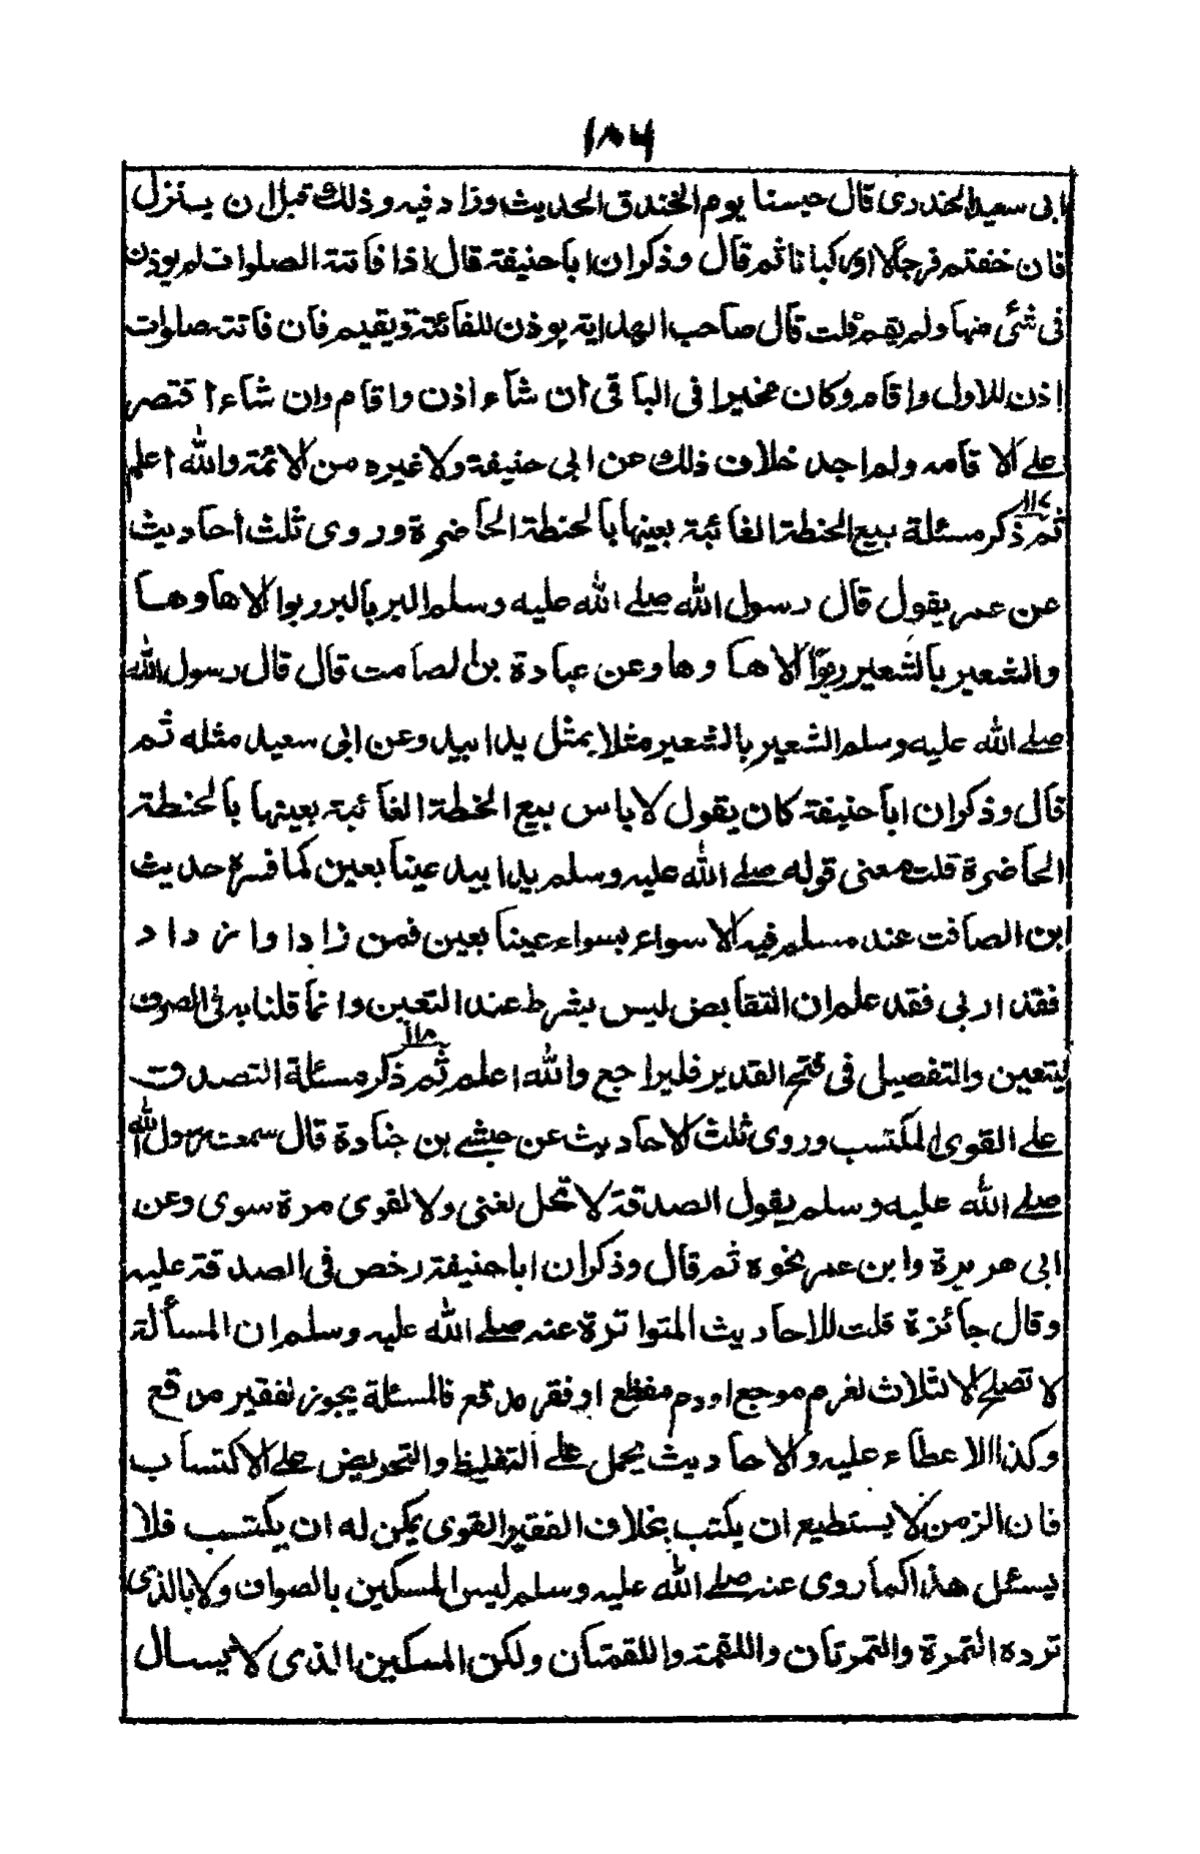 ١٨٦
ابى سعيد الخدرى قال حبسنا يوم الخندق الحديث وزاد فيه وذلك قبل ان ينزل
فان خفتم فرجالا او ركبانا ثم قال وذكر ان ابا حنيفة قال اذا فاتته الصلوات لم يوذن
فى شئى منها ولم يقم قلت قال صاحب الهداية يوذن للفائتة ويقيم فان فاتته صلوات
اذن للاول واقام وكان مخيرا فى الباقى ان شاء اذن واقام وان شاء اقتصر
على الاقامه ولم اجد خلاف ذلك عن ابى حنيفة ولا غيره من الائمة والله اعلم
١١٧
ثم ذكر مسئلة بيع الحنطة الغائبة بعينها بالحنطة الحاضرة وروى ثلث احاديث
عن عمر يقول قال رسول الله صلى الله عليه وسلم البر بالبر ربوا الا ها وها
والشعير بالشعير ربوا الا ها وها وعن عبادة بن الصامت قال قال رسول الله
صلى الله عليه وسلم الشعير بالشعير مثلا بمثل يدا بيد وعن ابى سعيد مثله ثم
قال وذكر ان ابا حنيفة كان يقول لا باس ببيع الخطة الغائبة بعينها بالحنطة
الحاضرة قلت معنى قوله صلى الله عليه وسلم يدا بيد عينا بعين كما فسره حديث
ابن الصافت عند مسلم فيه الا سواء بسواء عينا بعين فمن زاد او ازداد
فقد اربى فقد علم ان التقابض ليس بشرط عند التعين وانما قلنا به فى الصرف
ليتعين والتفصيل فى فتح القدير فليراجع والله اعلم ١١٨ ثم ذكر مسئلة التصدق
على القوى المكتسب وروى ثلث الاحاديث عن حبشى بن جنادة قال سمعت رسول الله
صلى الله عليه وسلم يقول الصدقة لا تحل لغنى ولا لقوى مرة سوى وعن
ابى هريرة وابن عمر نحوه ثم قال وذكر ان ابا حنيفة رخص فى الصدقة عليه
وقال جائزة قلت للاحاديث المتواترة عنه صلى الله عليه وسلم ان المسألة
لا تصلح الا لثلاث لغرم موجع او دم مفظع او فقر مدقع فالمسئلة يجوز لفقير مدقع
وكذا الاعطاء عليه والاحاديث يحمل على التغليظ والتحريض على الاكتساب
فان الزمن لا يستطيع ان يكتب بخلاف الفقير القوى يمكن له ان يكتسب فلا
يسئل هذا كما روى عنه صلى الله عليه وسلم ليس المسكين بالصواف ولا بالذى
ترده التمرة والتمرتان واللقمة واللقمتان ولكن المسكين الذى لا يسال